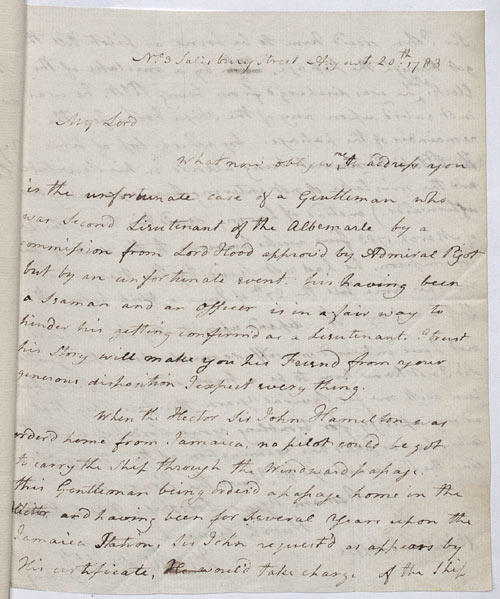 No 3 Salisbury Street August 20th 1783
My Lord
What now obliges me to address you
is the unfortunate case of a Gentleman who
was Second Lieutenant of the Albemarle by a
commission from Lord Hood approv'd by Admiral Pigot
but by an unfortunate event. his having been
a Seaman and an officer is in a fair way to
hinder his getting confirmed as a Lieutenant. I trust
his Story will make you his Friend from your
generous disposition I expect every thing.
When the Hector Sir John Hamilton was
order'd home from Jamaica, no pilot could be got
to carry the Ship through the Windward passage.
this Gentleman being order'd a passage home in the
Hector and having been for several Years upon the
Jamaica Station, Sir John request'd as appears by
His certificate, He would take charge of the Ship